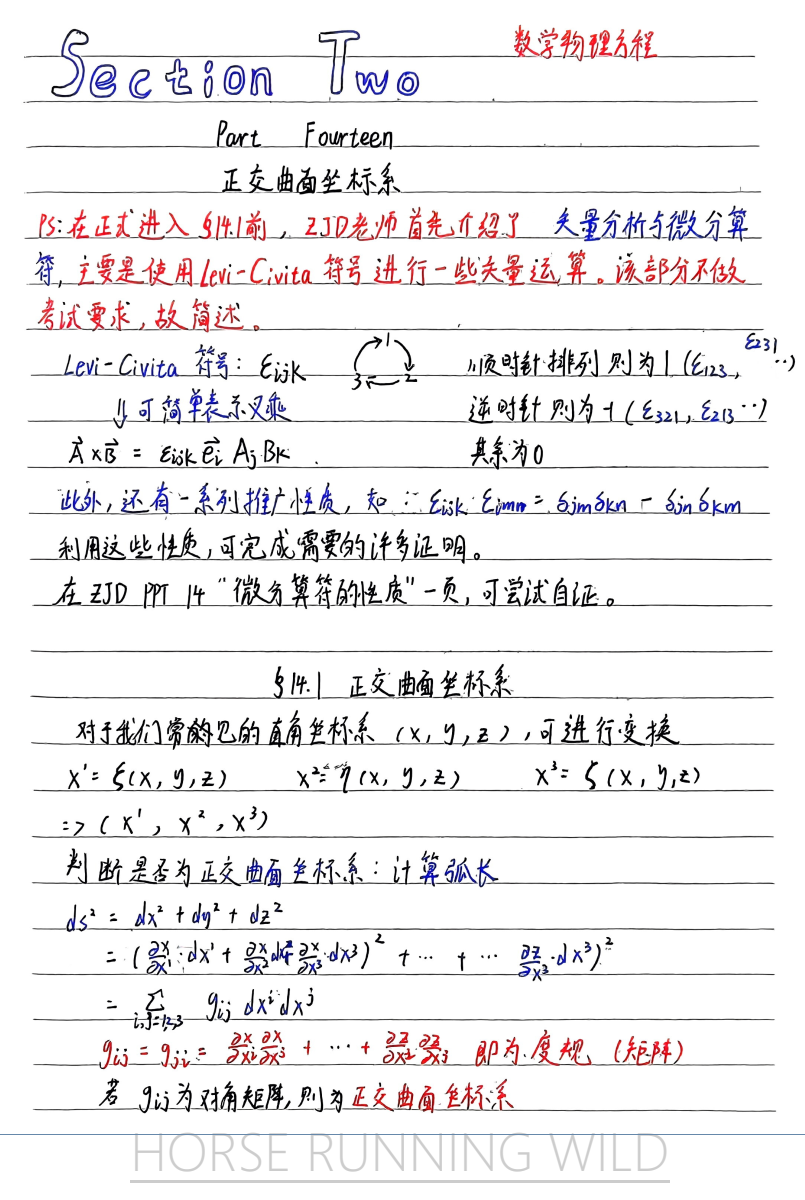 数学物理方程
Section Two
Part Fourteen
正交曲面坐标系
PS:在正式进入 §14.1前，ZJD老师首先介绍了 矢量分析与微分算
符,主要是使用Levi-Civita符号进行一些矢量运算。该部分不做
考试要求,故简述。
Levi-Civita 符号: εijk 1 2 3 顺时针排列则为1 (ε123, ε231 ··)
⇓可简单表示叉乘 逆时针则为-1 (ε321, ε213 ··)
A⃗×B⃗ = εijk e⃗i Aj Bk . 其余为0
此外,还有一系列推广性质,如: εijk εimn = δjmδkn - δjnδkm
利用这些性质,可完成需要的许多证明。
在ZJD PPT 14 "微分算符的性质"一页,可尝试自证。
§14.1 正交曲面坐标系
对于我们常见的直角坐标系 (x, y, z),可进行变换
x¹=ξ(x, y, z) x²=η(x, y, z) x³=ζ(x, y, z)
=> (x¹, x², x³)
判断是否为正交曲面坐标系:计算弧长
ds² = dx² + dy² + dz²
= (∂x/∂x¹·dx¹ + ∂x/∂x²dx²+∂x/∂x³·dx³)² + ··· + ··· ∂z/∂x³·dx³)²
= Σ i,j=1,2,3 gij dxⁱdxʲ
gij = gji = ∂x/∂xⁱ ∂x/∂xʲ + ··· + ∂z/∂xⁱ ∂z/∂xʲ 即为度规 (矩阵)
若 gij为对角矩阵,则为正交曲面坐标系
HORSE RUNNING WILD